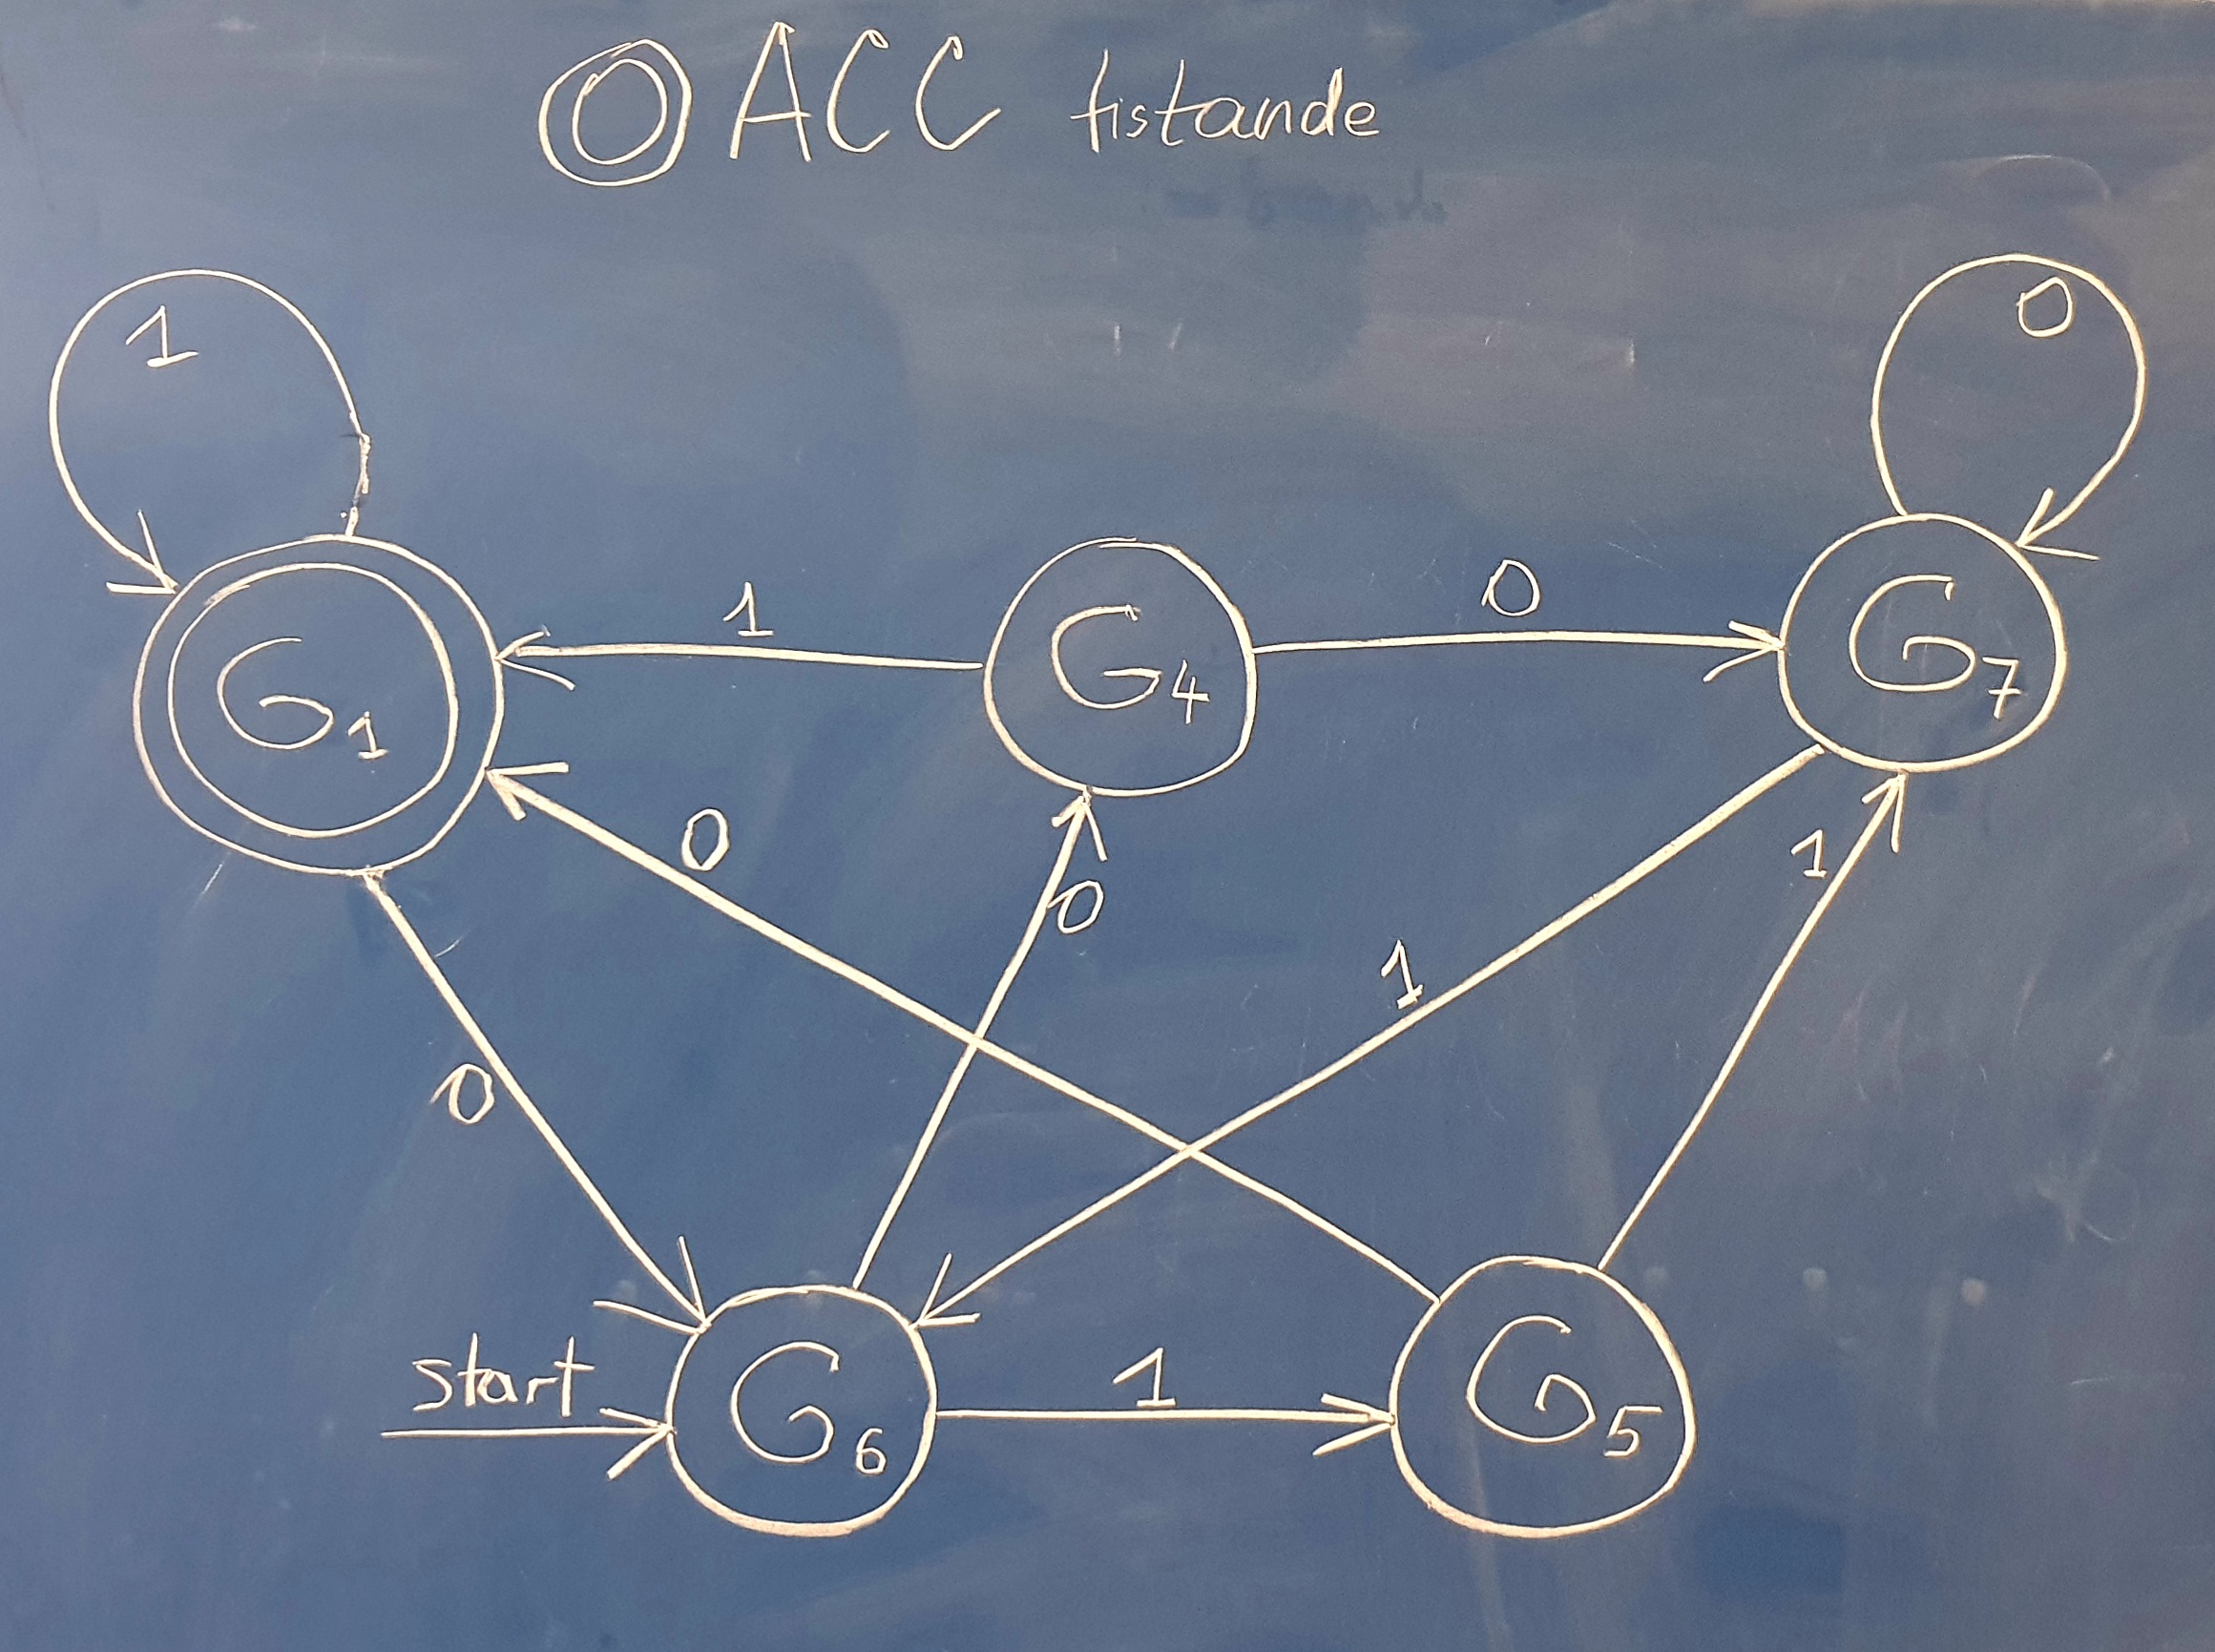 ACC tistande
1
0
1
0
G₁
G₄
G₇
0
0
1
1
0
start
1
G₆
G₅